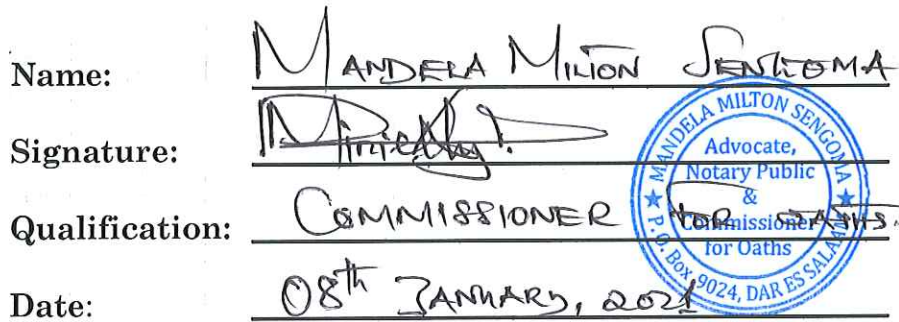 Name: MANDELA MILTON SENGOMA
Signature:
Qualification: COMMISSIONER FOR OATHS.
Date: 08th JANUARY, 2021
MANDELA MILTON SENGOMA
Advocate,
Notary Public
&
Commissioner
for Oaths
P. O. Box 9024, DAR ES SALAAM